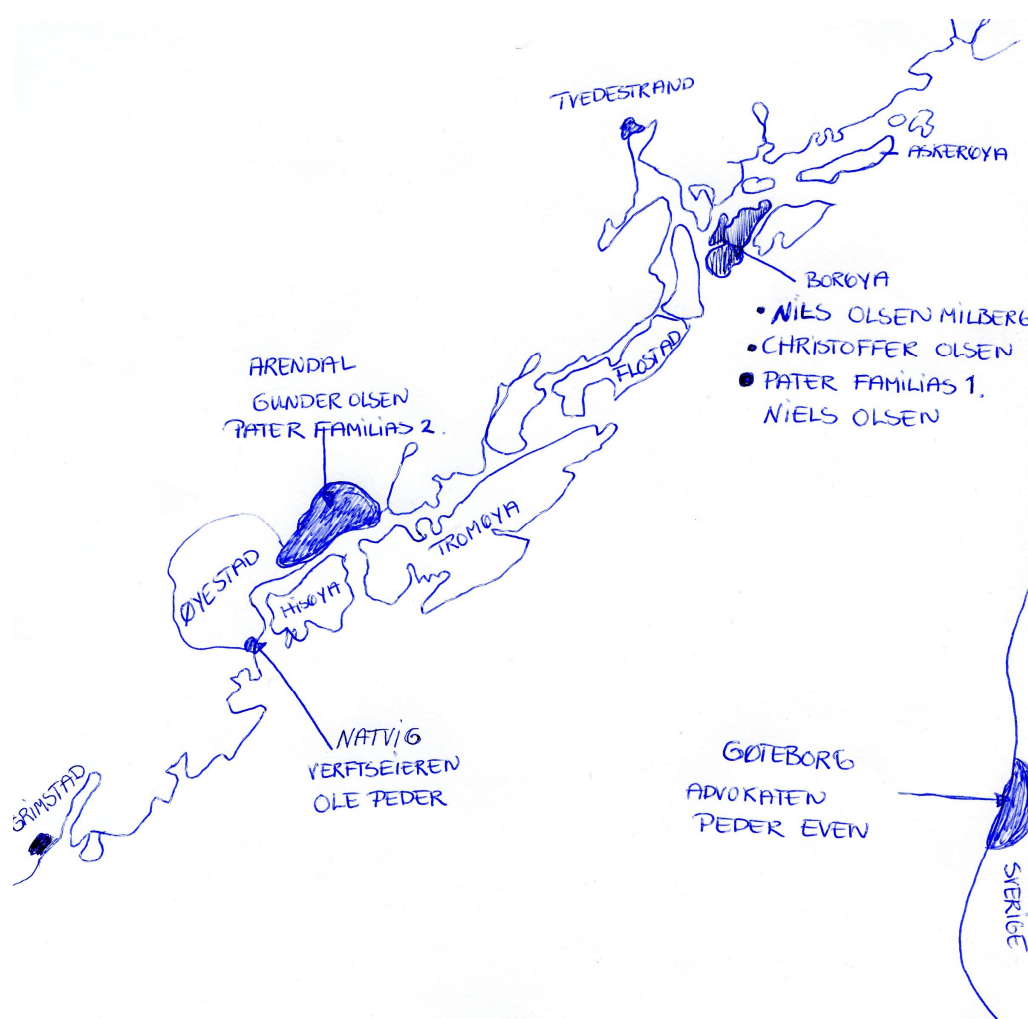 TVEDESTRAND
ASKERØYA
BORØYA
• NILS OLSEN MILBERG
• CHRISTOFFER OLSEN
• PATER FAMILIAS 1.
NIELS OLSEN
FLOSTAD
ARENDAL
GUNDER OLSEN
PATER FAMILIAS 2.
TROMØYA
ØYESTAD
HISØYA
NATVIG
VERFTSEIEREN
OLE PEDER
GRIMSTAD
GØTEBORG
ADVOKATEN
PEDER EVEN
SVERIGE